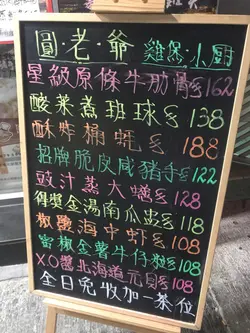 圓·老·爺 雞煲·小厨
星級原條牛肋骨$162
酸菜煮班球$138
酥炸桶蚝$188
招牌脆皮咸豬手$122
豉汁蒸大鱔$128
得獎金湯南瓜$118
椒鹽海中虾$108
蜜椒金薯牛仔粒$108
XO醬北海道元貝$108
全日免收加一茶位